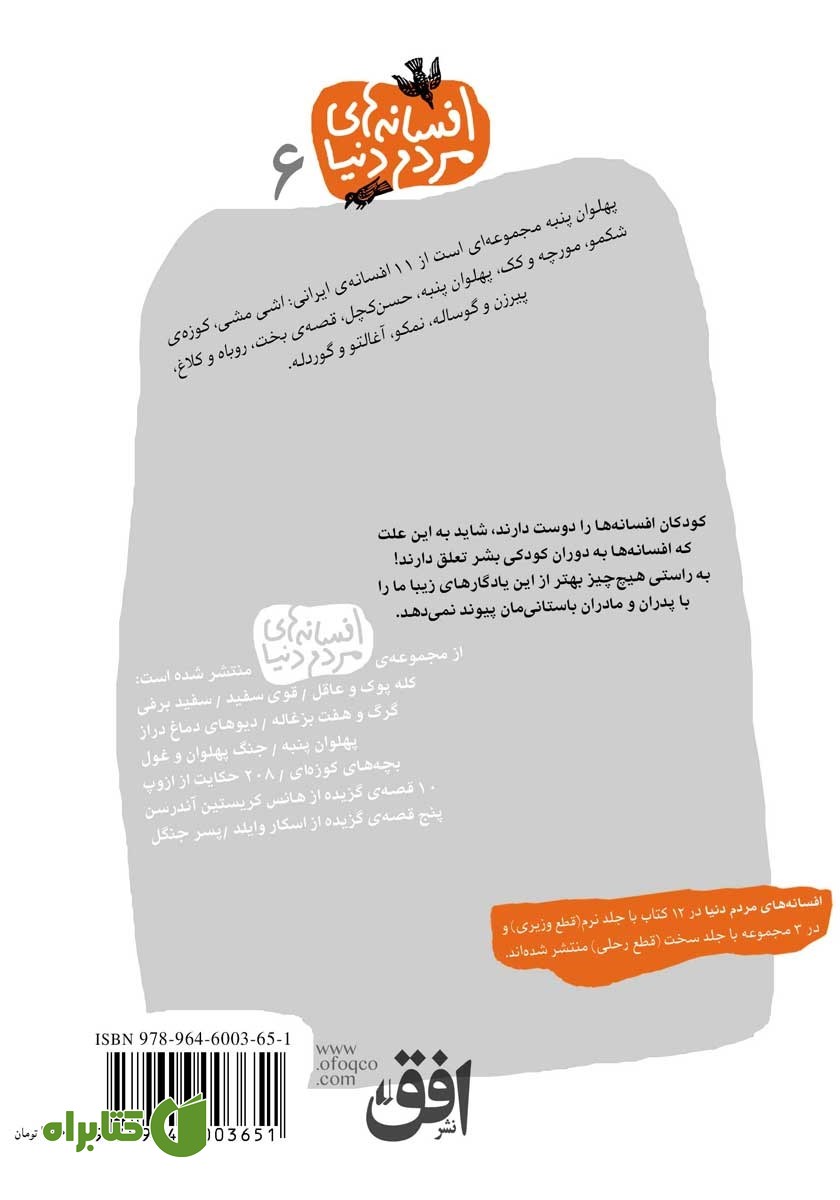 افسانه‌های
مردم دنیا
۶
پهلوان پنبه مجموعه‌ای است از ۱۱ افسانه‌ی ایرانی: اشی مشی، کوزه‌ی
شکمو، مورچه و کک، پهلوان پنبه، حسن‌کچل، قصه‌ی بخت، روباه و کلاغ،
پیرزن و گوساله، نمکو، آغالتو و گوردله.
کودکان افسانه‌ها را دوست دارند، شاید به این علت
که افسانه‌ها به دوران کودکی بشر تعلق دارند!
به راستی هیچ‌چیز بهتر از این یادگارهای زیبا ما را
با پدران و مادران باستانی‌مان پیوند نمی‌دهد.
از مجموعه‌ی افسانه‌های مردم دنیا منتشر شده است:
کله پوک و عاقل / قوی سفید / سفید برفی
گرگ و هفت بزغاله / دیوهای دماغ دراز
پهلوان پنبه / جنگ پهلوان و غول
بچه‌های کوزه‌ای / ۲۰۸ حکایت از ازوپ
۱۰ قصه‌ی گزیده از هانس کریستین آندرسن
پنج قصه‌ی گزیده از اسکار وایلد / پسر جنگل
افسانه‌های مردم دنیا در ۱۲ کتاب با جلد نرم (قطع وزیری) و
در ۳ مجموعه با جلد سخت (قطع رحلی) منتشر شده‌اند.
ISBN 978-964-6003-65-1
www
.ofoqco
.com
نشر افق
کتابراه
003651
تومان